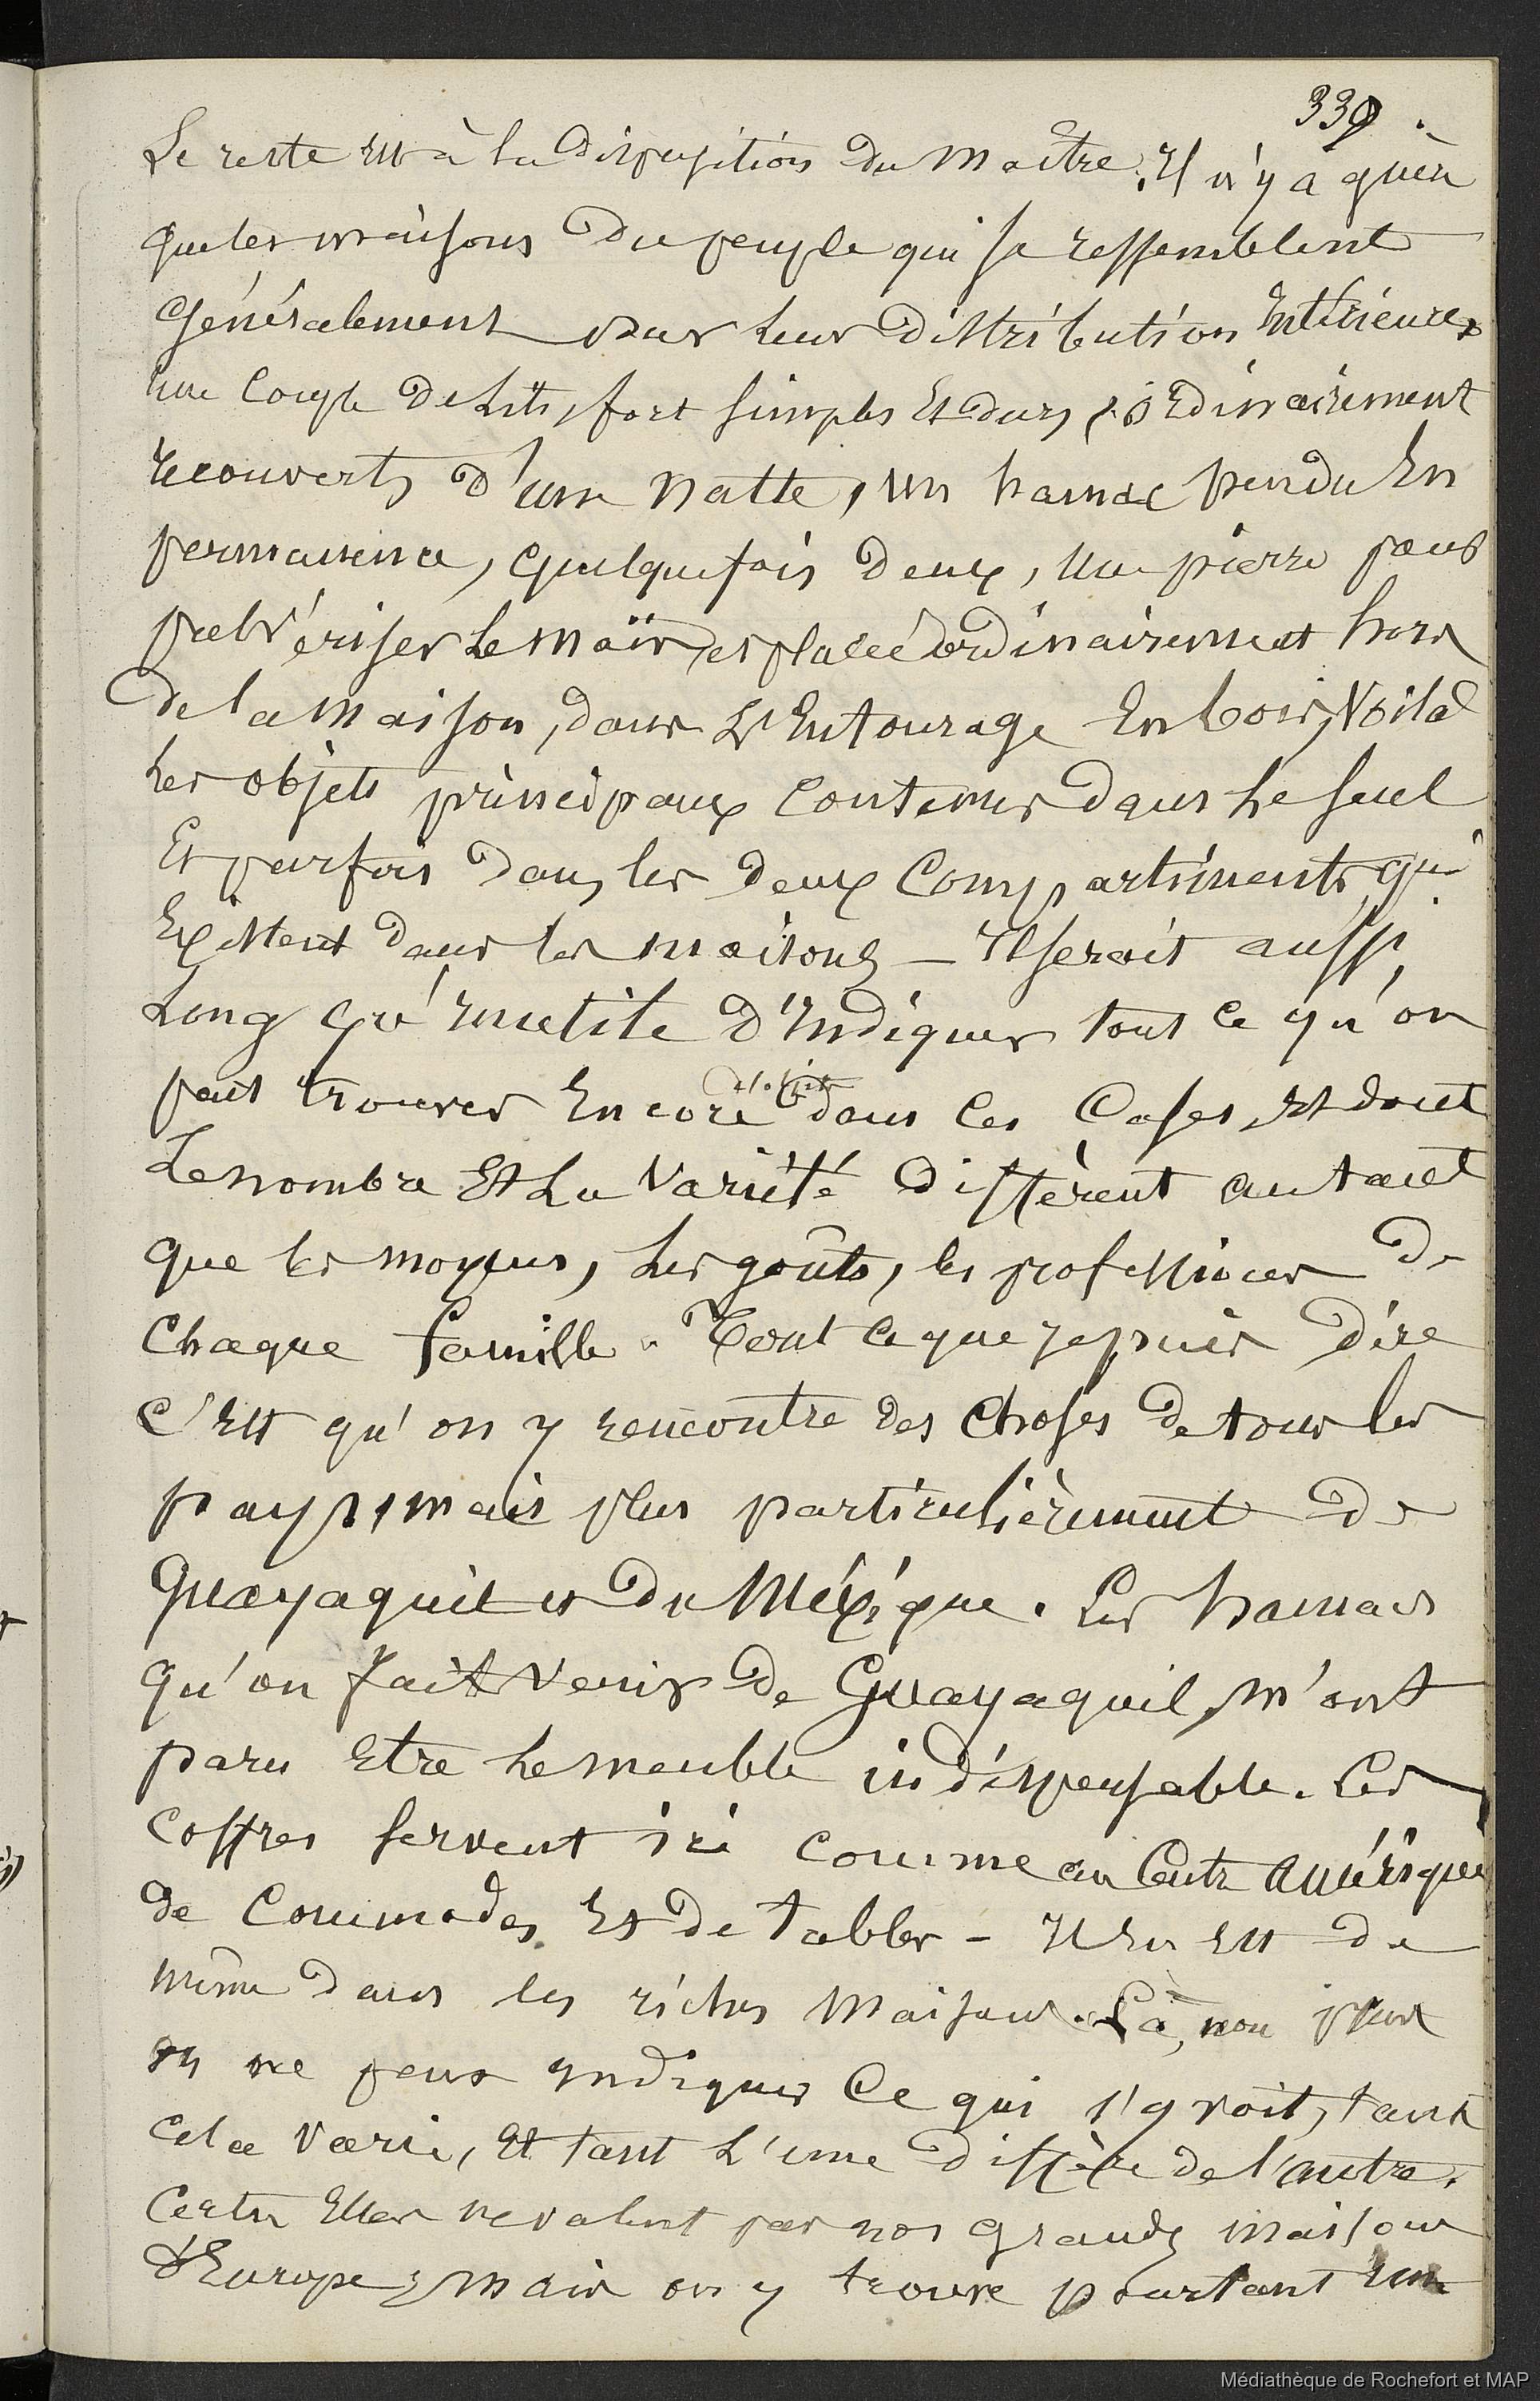 339.
Le reste est à la disposition du maître. Il n'y a guère
que les maisons du peuple qui se ressemblent
généralement par leur distribution intérieure,
une couple de lits, fort simples et durs, ordinairement
recouverts d'une natte, un hamac pendu en
permanence, quelquefois deux, une pierre pour
pulvériser le maïs, est placée ordinairement hors
de la maison, dans l'entourage en bois, voilà
les objets principaux contenus dans le seul
et parfois dans les deux compartiments qui
existent dans les maisons — Il serait aussi
long qu'inutile d'indiquer tout ce qu'on
peut trouver encore dans ces cases, et dont
le nombre et la variété diffèrent autant
que les moyens, les goûts, les professions de
chaque famille. Tout ce que je puis dire
c'est qu'on y rencontre des choses de tous les
pays, mais plus particulièrement de
Guayaquil et du Méxique. Les hamacs
qu'on fait venir de Guayaquil, m'ont
paru être le meuble indispensable. Les
coffres servent ici comme au Centre Amérique
de commodes et de tables - Il en est de
même dans les riches maisons. Là, non plus
on ne peut indiquer ce qui s'y voit, tant
cela varie, et tant l'une diffère de l'autre.
Certes elles ne valent pas nos grandes maisons
d'Europe, mais on y trouve pourtant un
Médiathèque de Rochefort et MAP